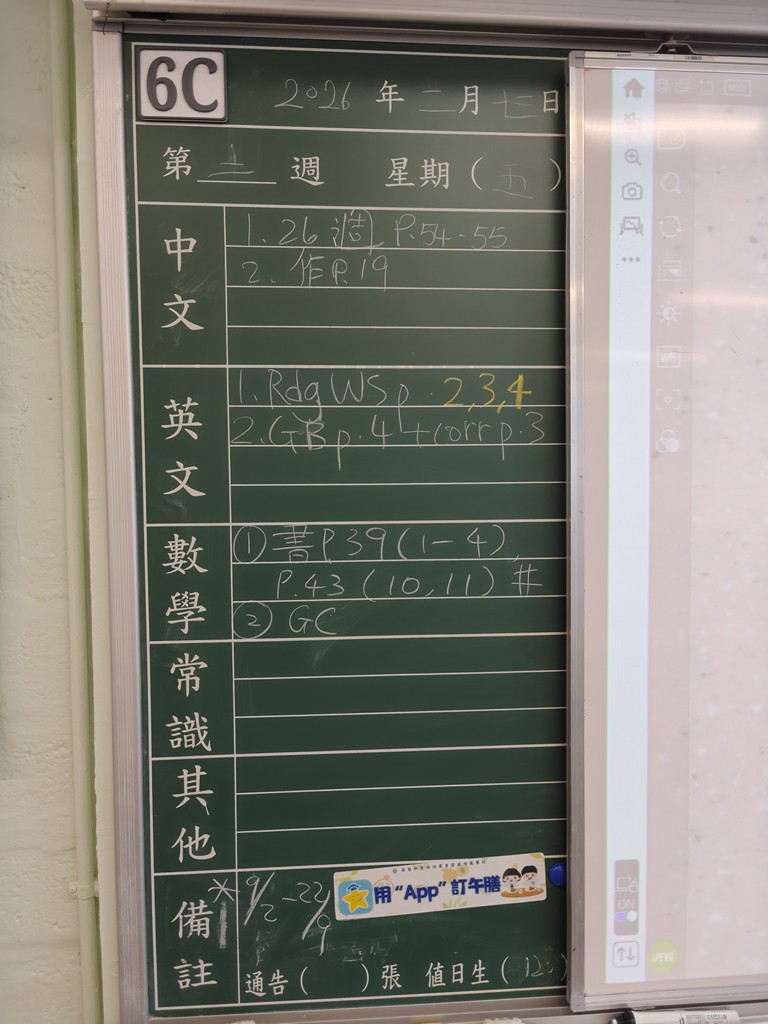 6C
2026 年 二 月 日
第 週 星期 ( 五 )
中文
1. 26 週 P.54-55
2. 作P.19
英文
1. Rdg WS p. 2,3,4
2. GB p.4 + corr p.3
數學
① 書P.39 (1-4),
P.43 (10,11) #
② GC
常識
其他
備註
用 “App” 訂午膳
通告 ( ) 張 值日生 (
ON